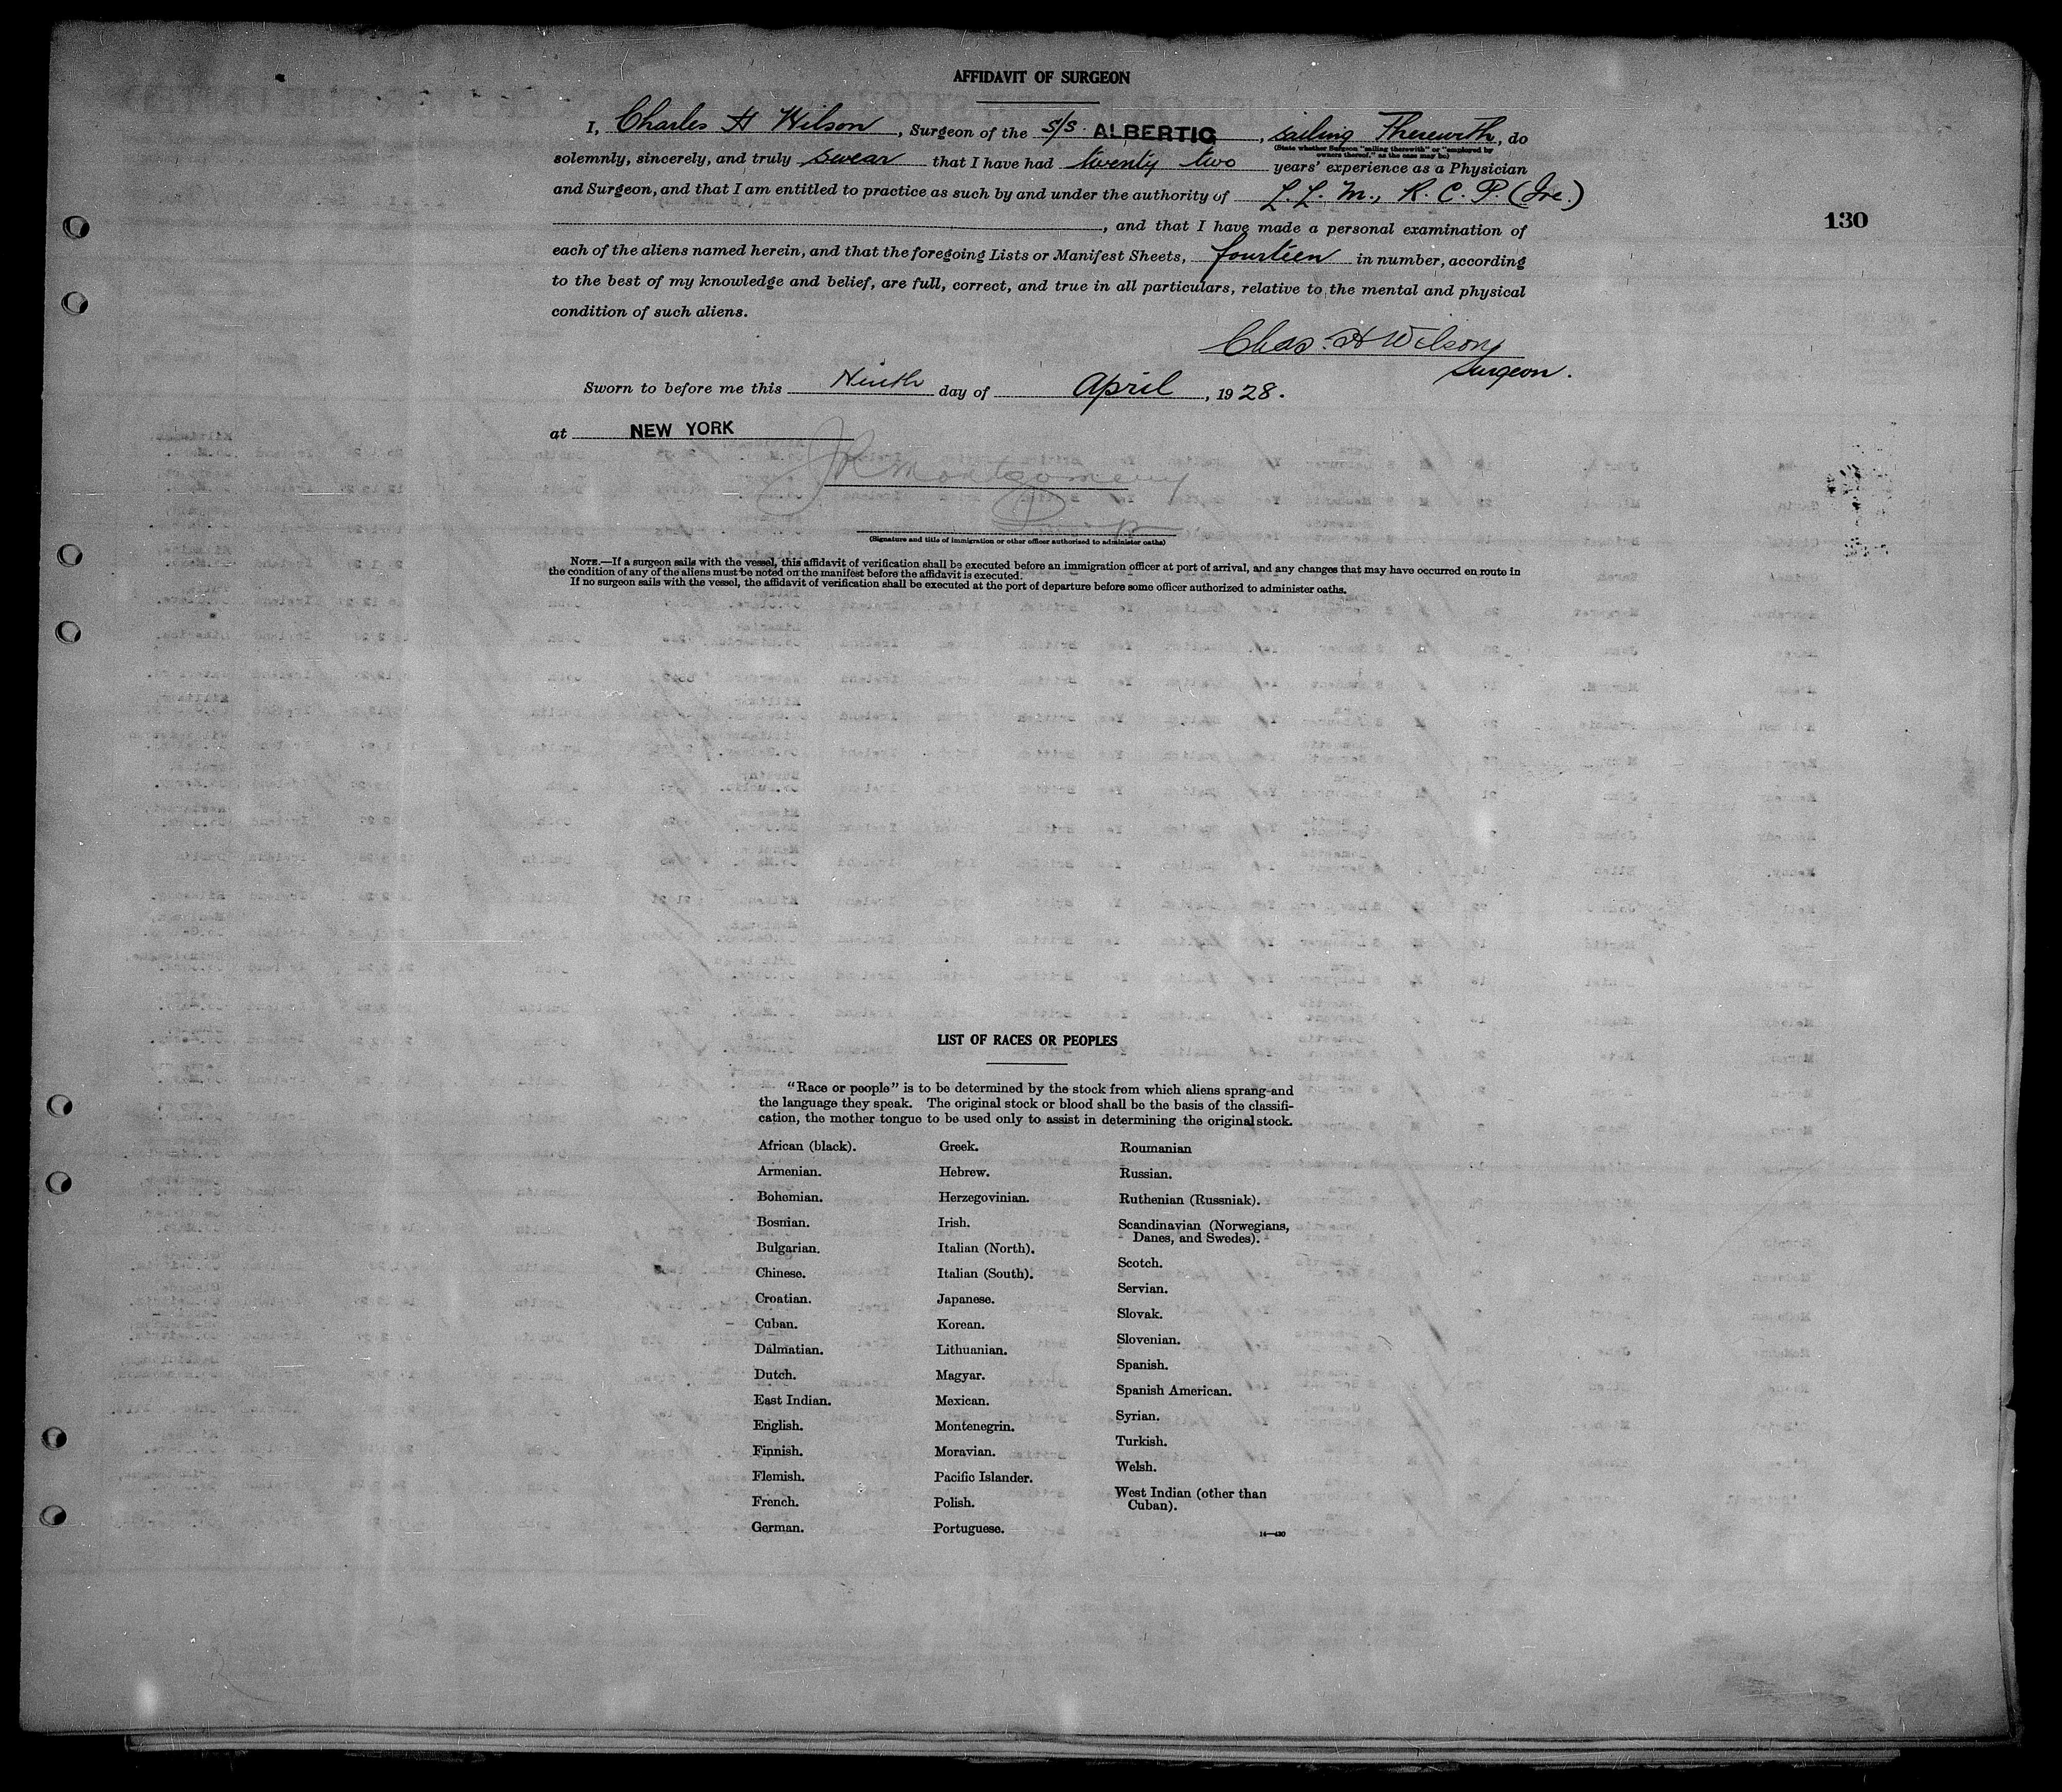 AFFIDAVIT OF SURGEON
I, Charles H Wilson, Surgeon of the S/S. ALBERTIC, sailing Therewith, do
(State whether Surgeon "sailing therewith" or "employed by
owners thereof," as the case may be)
solemnly, sincerely, and truly swear that I have had twenty two years' experience as a Physician
and Surgeon, and that I am entitled to practice as such by and under the authority of L. L. M., R. C. P. (Ire.)
130
, and that I have made a personal examination of
each of the aliens named herein, and that the foregoing Lists or Manifest Sheets, fourteen in number, according
to the best of my knowledge and belief, are full, correct, and true in all particulars, relative to the mental and physical
condition of such aliens.
Chas. H Wilson
Surgeon.
Sworn to before me this Ninth day of April, 1928.
at NEW YORK
Montgomery
(Signature and title of immigration or other officer authorized to administer oaths)
NOTE.—If a surgeon sails with the vessel, this affidavit of verification shall be executed before an immigration officer at port of arrival, and any changes that may have occurred en route in
the condition of any of the aliens must be noted on the manifest before the affidavit is executed.
If no surgeon sails with the vessel, the affidavit of verification shall be executed at the port of departure before some officer authorized to administer oaths.
LIST OF RACES OR PEOPLES
"Race or people" is to be determined by the stock from which aliens sprang and
the language they speak. The original stock or blood shall be the basis of the classifi-
cation, the mother tongue to be used only to assist in determining the original stock.
African (black).
Armenian.
Bohemian.
Bosnian.
Bulgarian.
Chinese.
Croatian.
Cuban.
Dalmatian.
Dutch.
East Indian.
English.
Finnish.
Flemish.
French.
German.
Greek.
Hebrew.
Herzegovinian.
Irish.
Italian (North).
Italian (South).
Japanese.
Korean.
Lithuanian.
Magyar.
Mexican.
Montenegrin.
Moravian.
Pacific Islander.
Polish.
Portuguese.
Roumanian
Russian.
Ruthenian (Russniak).
Scandinavian (Norwegians,
Danes, and Swedes).
Scotch.
Servian.
Slovak.
Slovenian.
Spanish.
Spanish American.
Syrian.
Turkish.
Welsh.
West Indian (other than
Cuban).
14—430